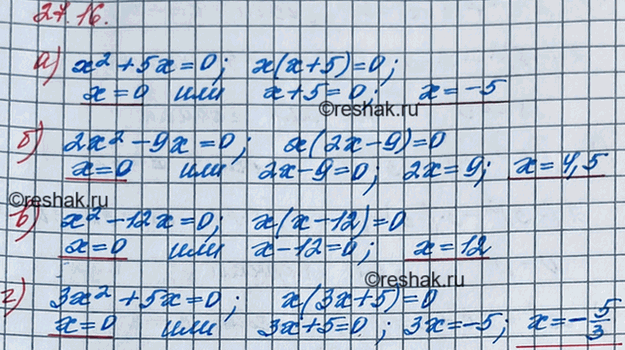 27.16.
а) x² + 5x = 0; x(x+5) = 0;
x = 0 или x+5 = 0; x = -5
©reshak.ru
б) 2x² - 9x = 0; x(2x-9) = 0
x = 0 или 2x-9 = 0; 2x = 9; x = 4,5
©reshak.ru
в) x² - 12x = 0; x(x-12) = 0
x = 0 или x-12 = 0; x = 12
©reshak.ru
г) 3x² + 5x = 0; x(3x+5) = 0
x = 0 или 3x+5 = 0; 3x = -5; x = -5/3